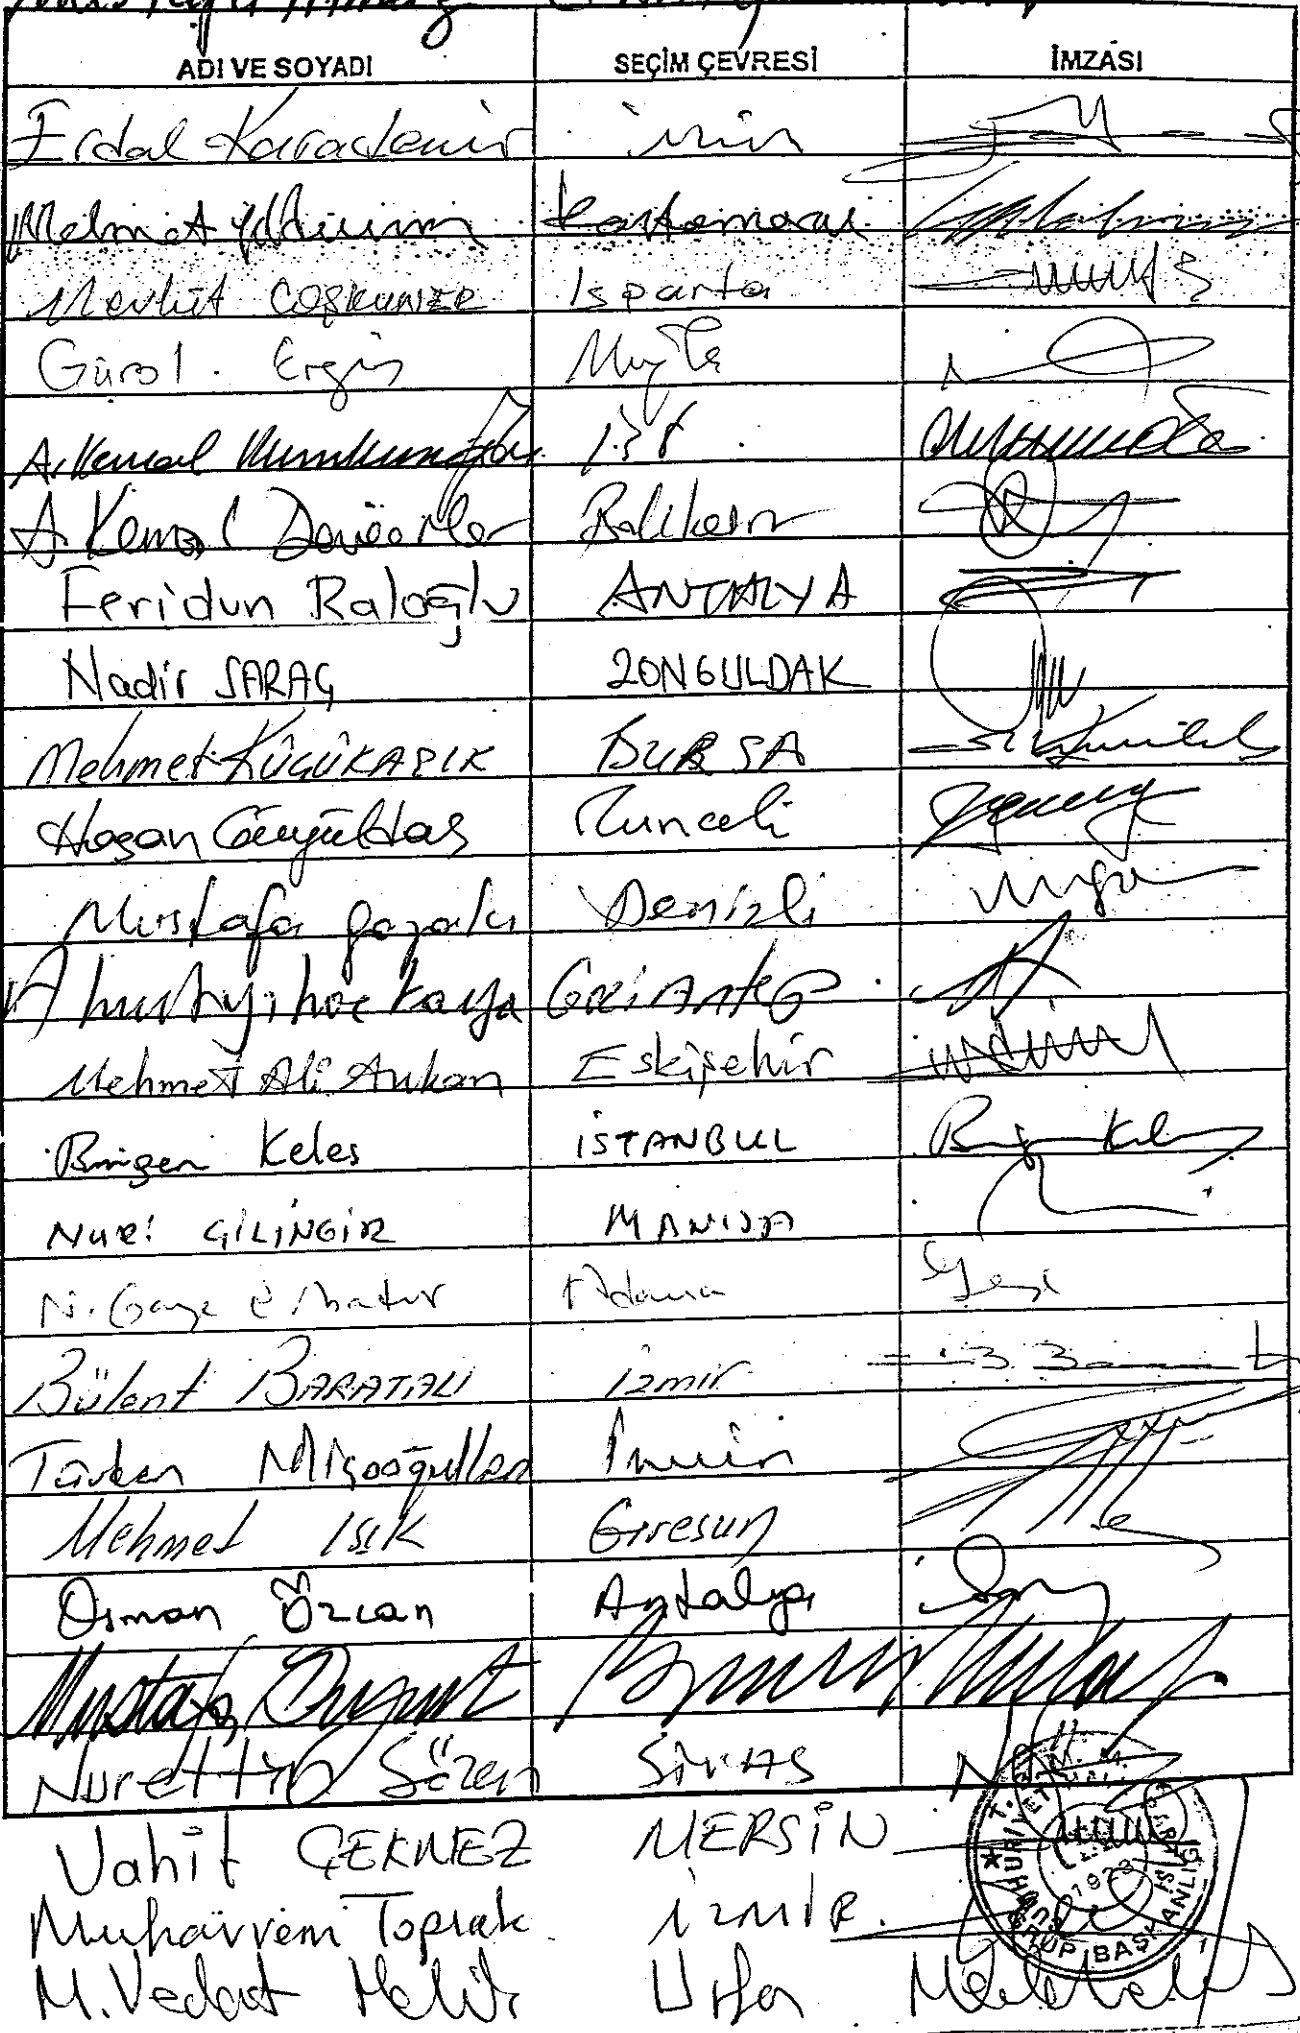 ADI VE SOYADI SEÇİM ÇEVRESİ İMZASI
Erdal Karademir İzmir
Mehmet Yıldırım Kastamonu
Mevlüt COŞKUNER Isparta
Gürol Ergin Muğla
A. Kemal Kumkumoğlu İst
A. Kemal Deveciler Balıkesir
Feridun Baloğlu ANTALYA
Nadir SARAÇ ZONGULDAK
Mehmet KÜÇÜKAŞIK BURSA
Hasan Güyüldar Tunceli
Mustafa Gazalcı Denizli
Ahmet Yılmazkaya GAZİANTEP
Mehmet Ali Arıkan Eskişehir
Birgen Keleş İSTANBUL Birgen Keleş
Nuri ÇİLİNGİR MANİSA
N. Gaye Erbatur Adana
Bülent BARATALI İzmir
Türkan Miçooğulları İzmir
Mehmet Işık Giresun
Osman Özcan Antalya
Mustafa Özyurt Bursa
Nurettin Sözen SİVAS
Vahit ÇEKMEZ MERSİN
Muharrem Toprak İZMİR.
M. Vedat Melik Urfa
GRUP BAŞKANLIĞI